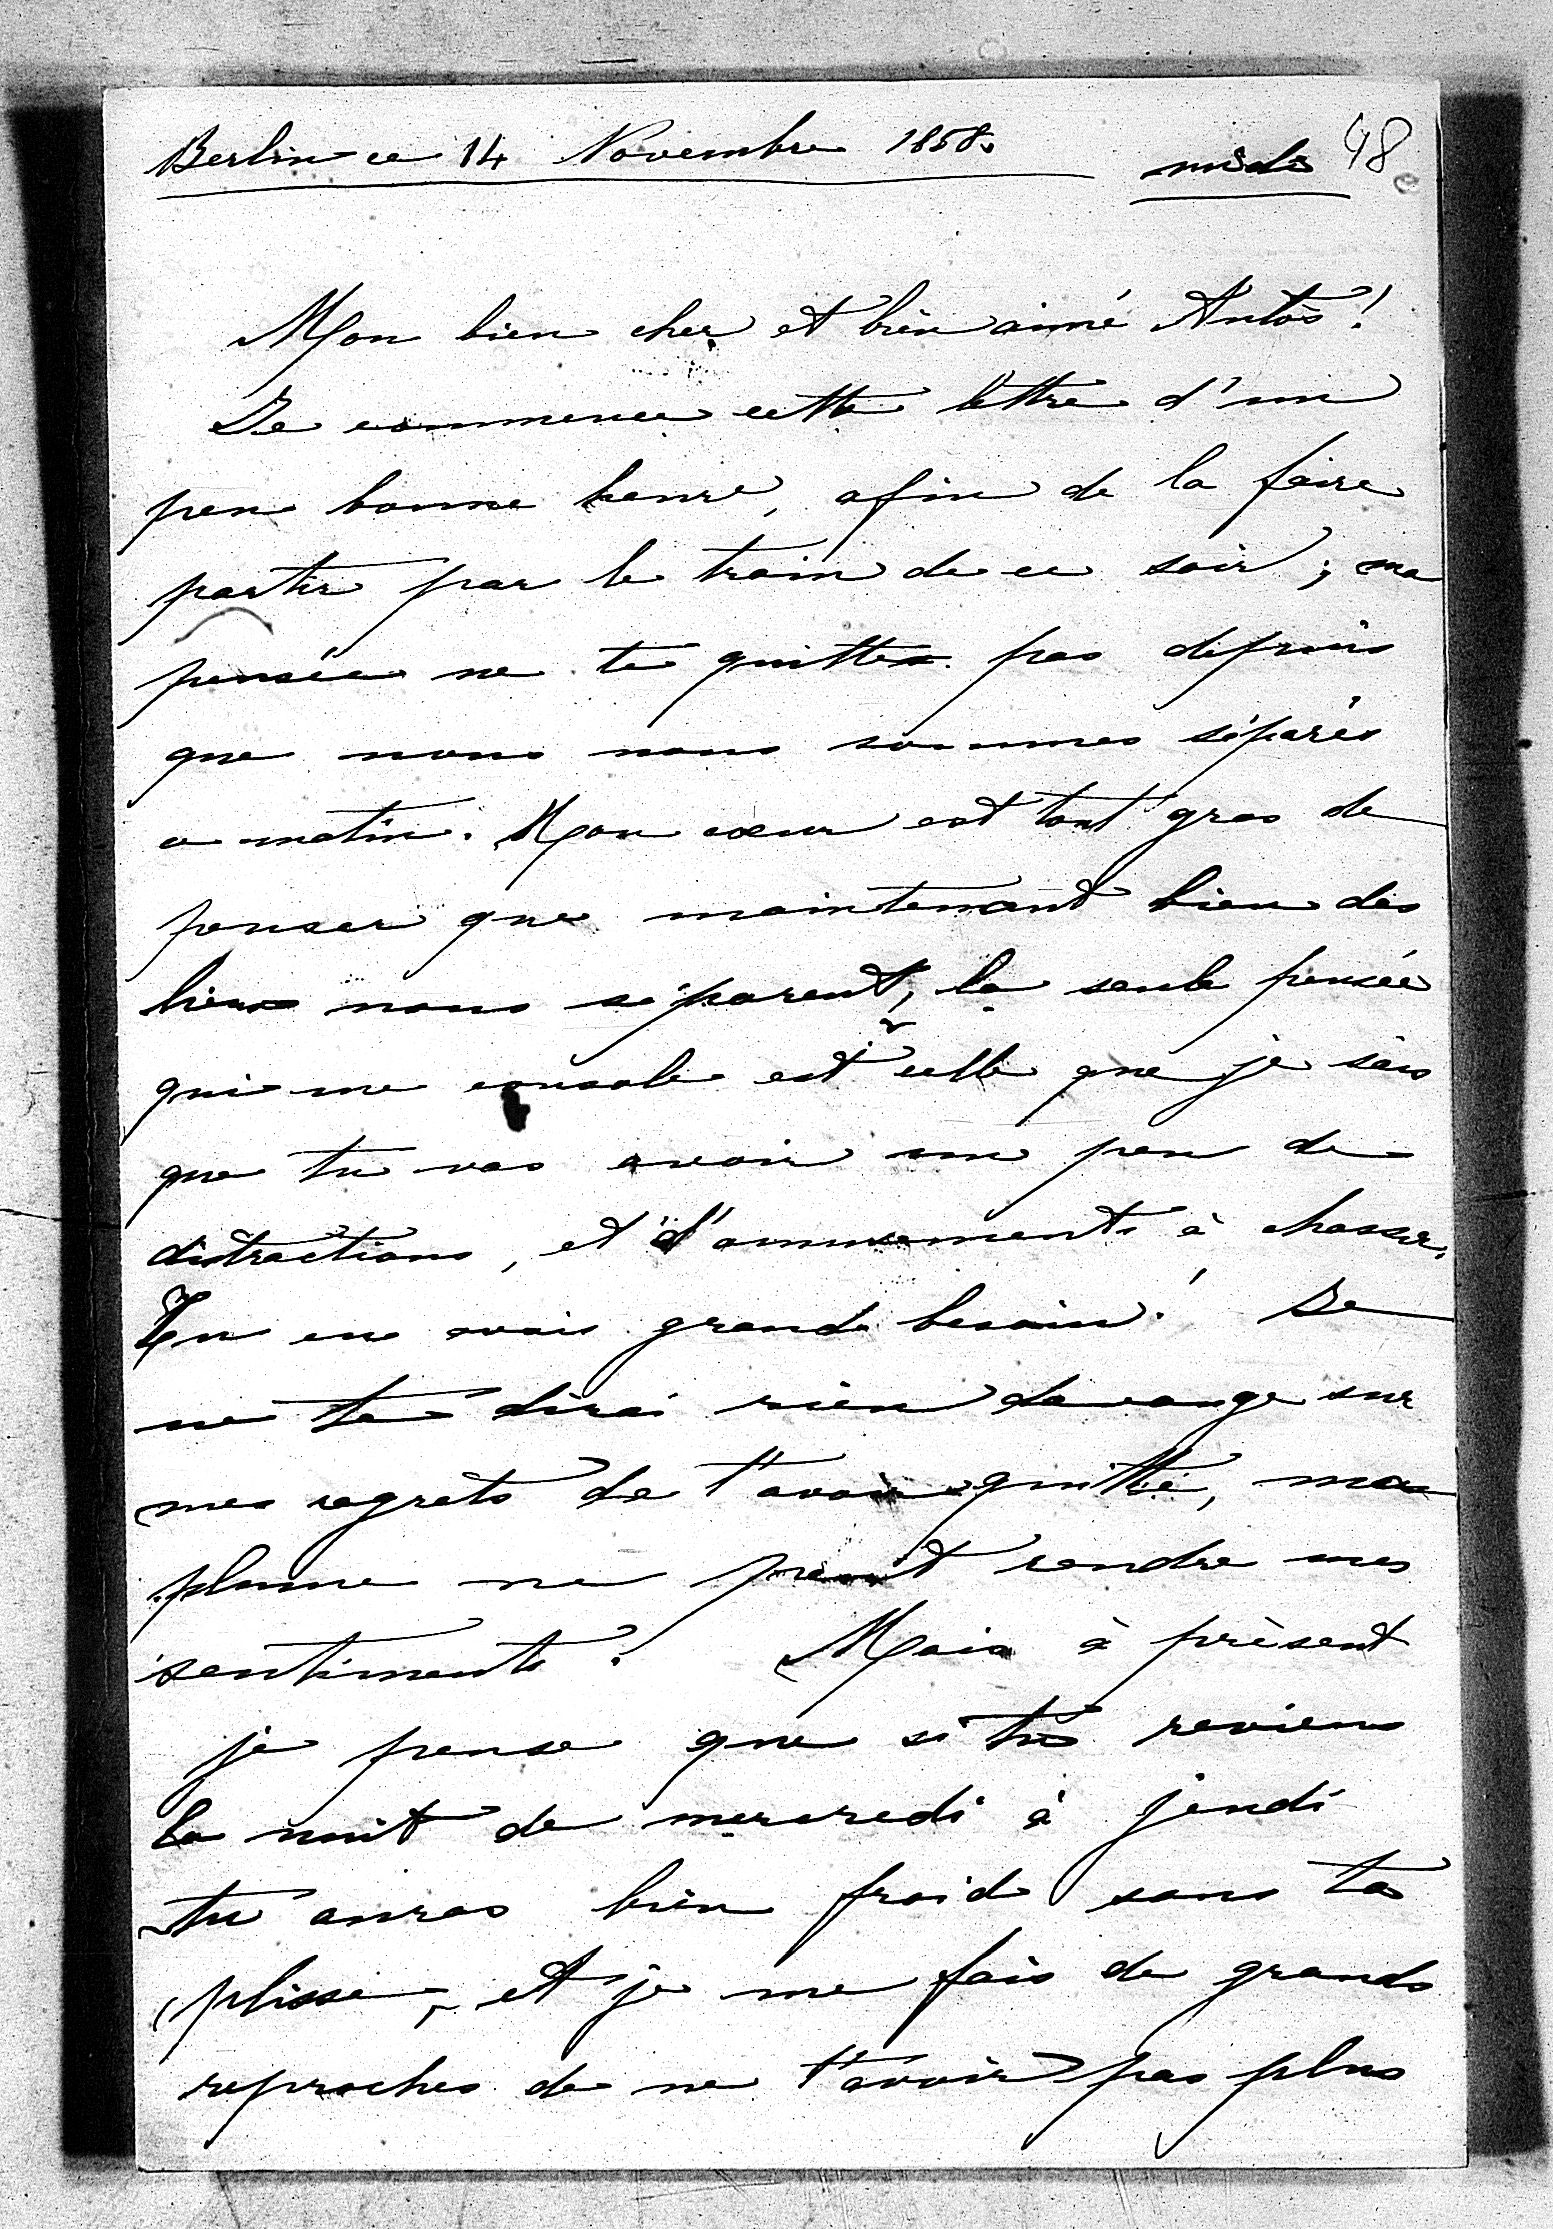 Berlin ce 14 Novembre 1858. midi 48
Mon bien cher et bien aimé Antos!
Je commence cette lettre d'un
peu bonne heure, afin de la faire
partir par le train de ce soir; ma
pensée ne te quitte pas depuis
que nous nous sommes séparés
ce matin. Mon coeur est tout gros de
penser que maintenant bien des
lieux nous séparent, la seule pensée
qui me console est celle que je sais
que tu vas avoir un peu de
distractions, et d'amusements à chasser.
Tu en avais grande besoin! Je
ne te dirai rien davange sur
mes regrets de t'avoir quitté, ma
plume ne peut rendre mes
sentiments! Mais à présent
je pense que si tu reviens
la nuit de mercredi à jeudi
tu auras bien froid sans ta
plisse, et je me fais de grands
reproches de ne t'avoir pas plus